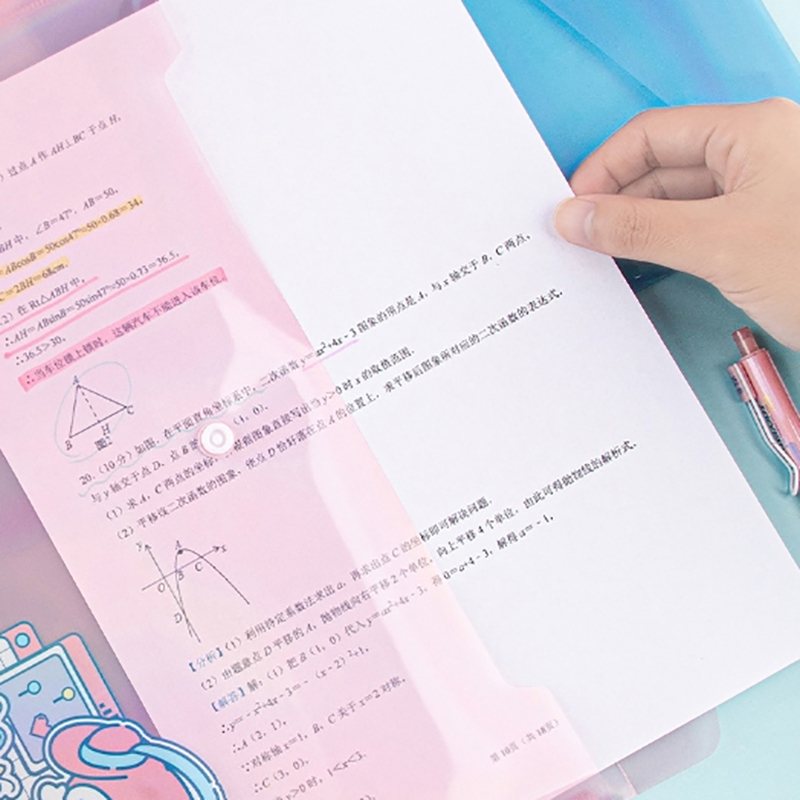 过点A作AH⊥BC于点H,
BH中,∠B=47°,AB=50,
ABcosB=50cos47°≈50×0.68=34,
C=2BH=68cm.
(2)在Rt△ABH中,
∴AH=ABsinB=50sin47°≈50×0.73=36.5,
∴36.5>30,
∴当车位锁上锁时,这辆汽车不能进入该车位.
A
B
H
C
图2
20.(10分)如图,在平面直角坐标系中,二次函数y=ax²+4x-3图象的顶点是A,与x轴交于B,C两点,
与y轴交于点D,点B (1,0).
(1)求A,C两点的坐标, 根据图象直接写出当y>0时x的取值范围.
(2)平移该二次函数的图象,使点D恰好落在点A的位置上,求平移后图象所对应的二次函数的表达式.
y
A
x
O
B
C
D
【分析】(1)利用待定系数法求出a,再求出点C的坐标即可解决问题.
(2)由题意点D平移的A,抛物线向右平移2个单位,向上平移4个单位,由此可得抛物线的解析式.
【解答】解:(1)把B(1,0)代入y=ax²+4x-3,得0=a+4-3,解得a=-1,
∴y=-x²+4x-3=-(x-2)²+1,
∴A(2,1),
∵对称轴x=1,B,C关于x=2对称,
∴C(3,0),
y>0时,1<x<3.
第10页(共18页)